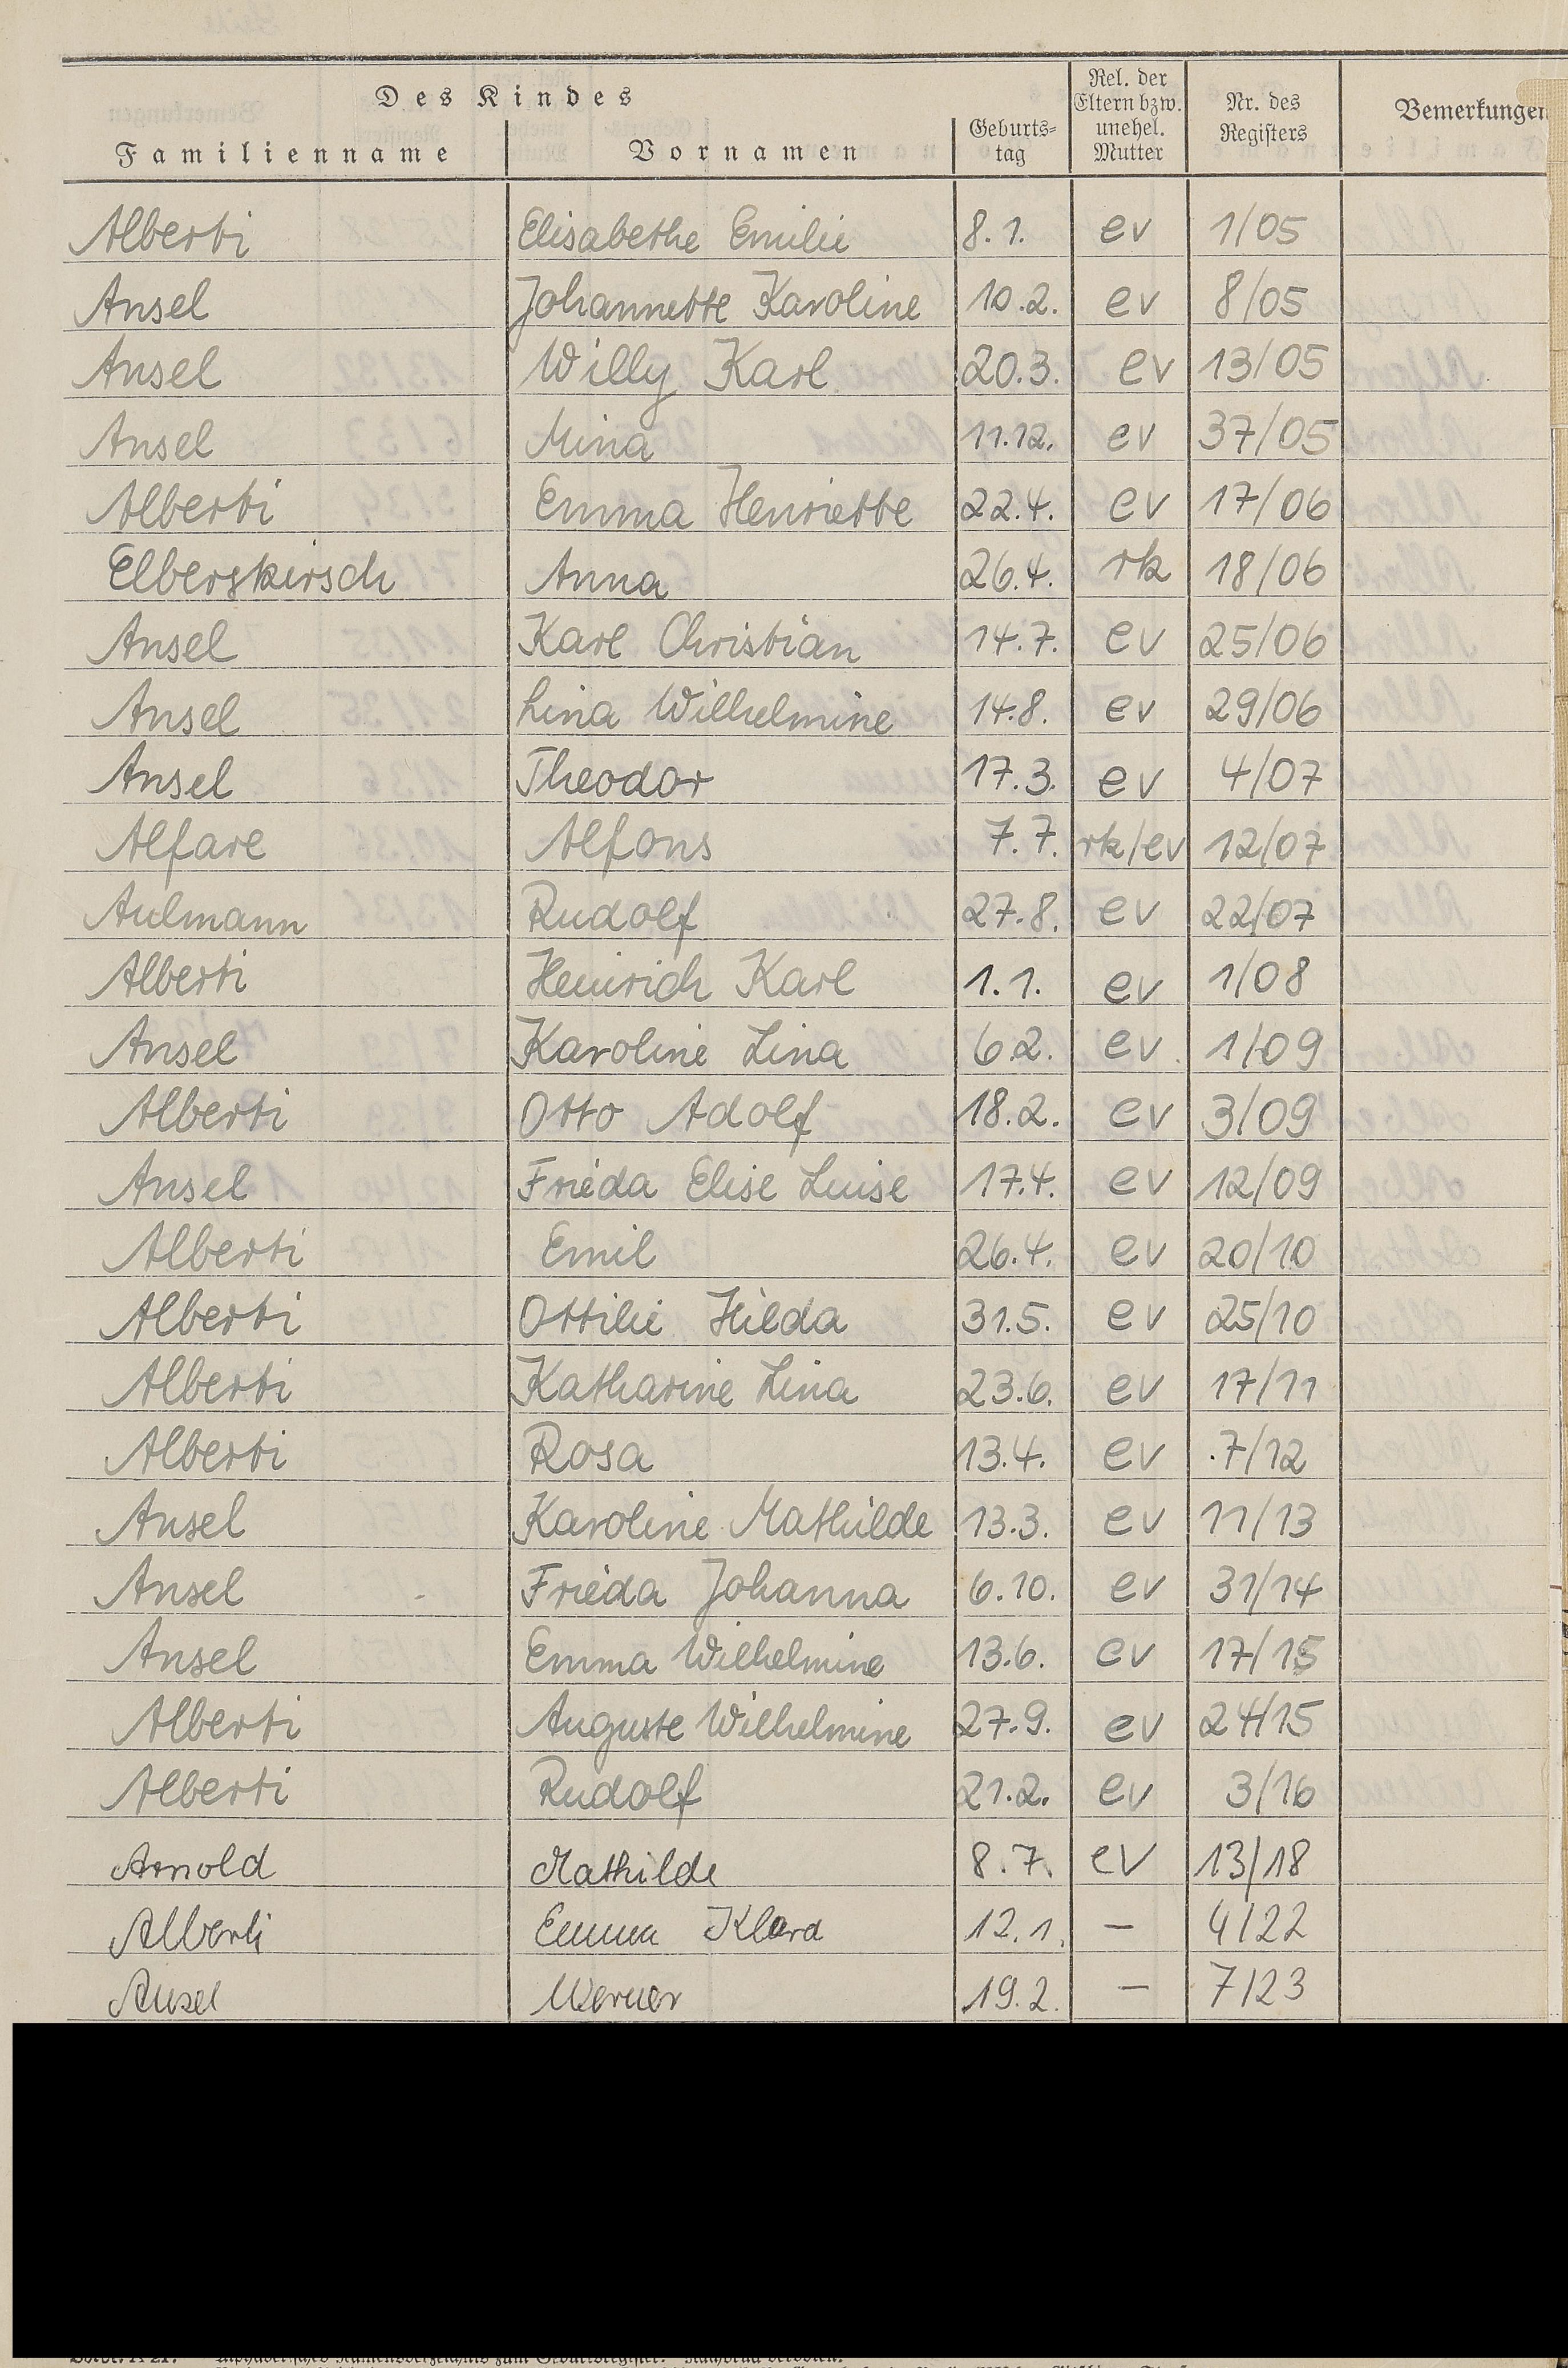 Des Kindes
Familienname Vornamen Geburts=tag Rel. der Eltern bzw. unehel. Mutter Nr. des Registers Bemerkungen
Alberti Elisabethe Emilie 8.1. ev 1/05
Ansel Johannette Karoline 10.2. ev 8/05
Ansel Willy Karl 20.3. ev 13/05
Ansel Mina 11.12. ev 37/05
Alberti Emma Henriette 22.4. ev 17/06
Elberskirsch Anna 26.4. rk 18/06
Ansel Karl Christian 14.7. ev 25/06
Ansel Lina Wilhelmine 14.8. ev 29/06
Ansel Theodor 17.3. ev 4/07
Alfare Alfons 7.7. rk/ev 12/07
Aulmann Rudolf 27.8. ev 22/07
Alberti Heinrich Karl 1.1. ev 1/08
Ansel Karoline Lina 6.2. ev 1/09
Alberti Otto Adolf 18.2. ev 3/09
Ansel Frieda Elise Luise 17.4. ev 12/09
Alberti Emil 26.4. ev 20/10
Alberti Ottilie Hilda 31.5. ev 25/10
Alberti Katharine Lina 23.6. ev 17/11
Alberti Rosa 13.4. ev 7/12
Ansel Karoline Mathilde 13.3. ev 11/13
Ansel Frieda Johanna 6.10. ev 31/14
Ansel Emma Wilhelmine 13.6. ev 17/15
Alberti Auguste Wilhelmine 27.9. ev 24/15
Alberti Rudolf 21.2. ev 3/16
Arnold Mathilde 8.7. ev 13/18
Alberti Emma Klara 12.1. — 4/22
Ansel Werner 19.2. — 7/23